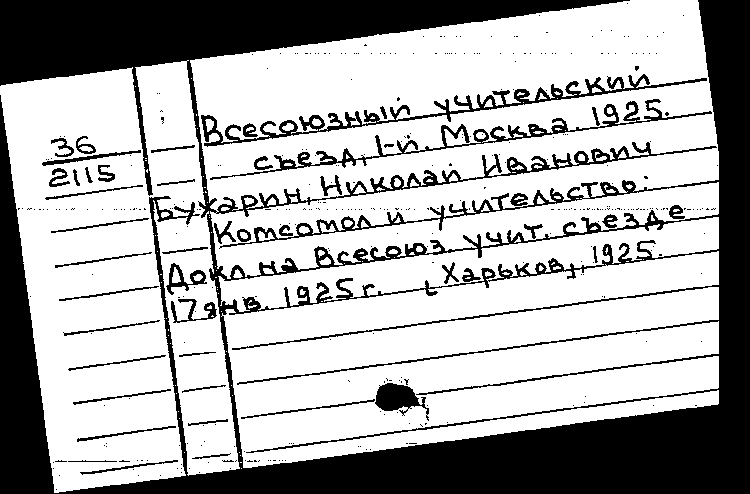 36
2115
Всесоюзный учительский
съезд, 1-й. Москва. 1925.
Бухарин, Николай Иванович
Комсомол и учительство:
Докл. на Всесоюз. учит. съезде
17 янв. 1925 г. [Харьков], 1925.